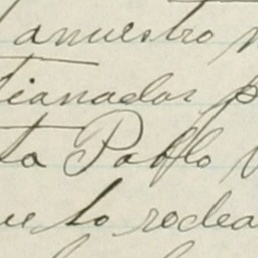 a nuestro
tianadas p
ta Pablo
ue lo rodea